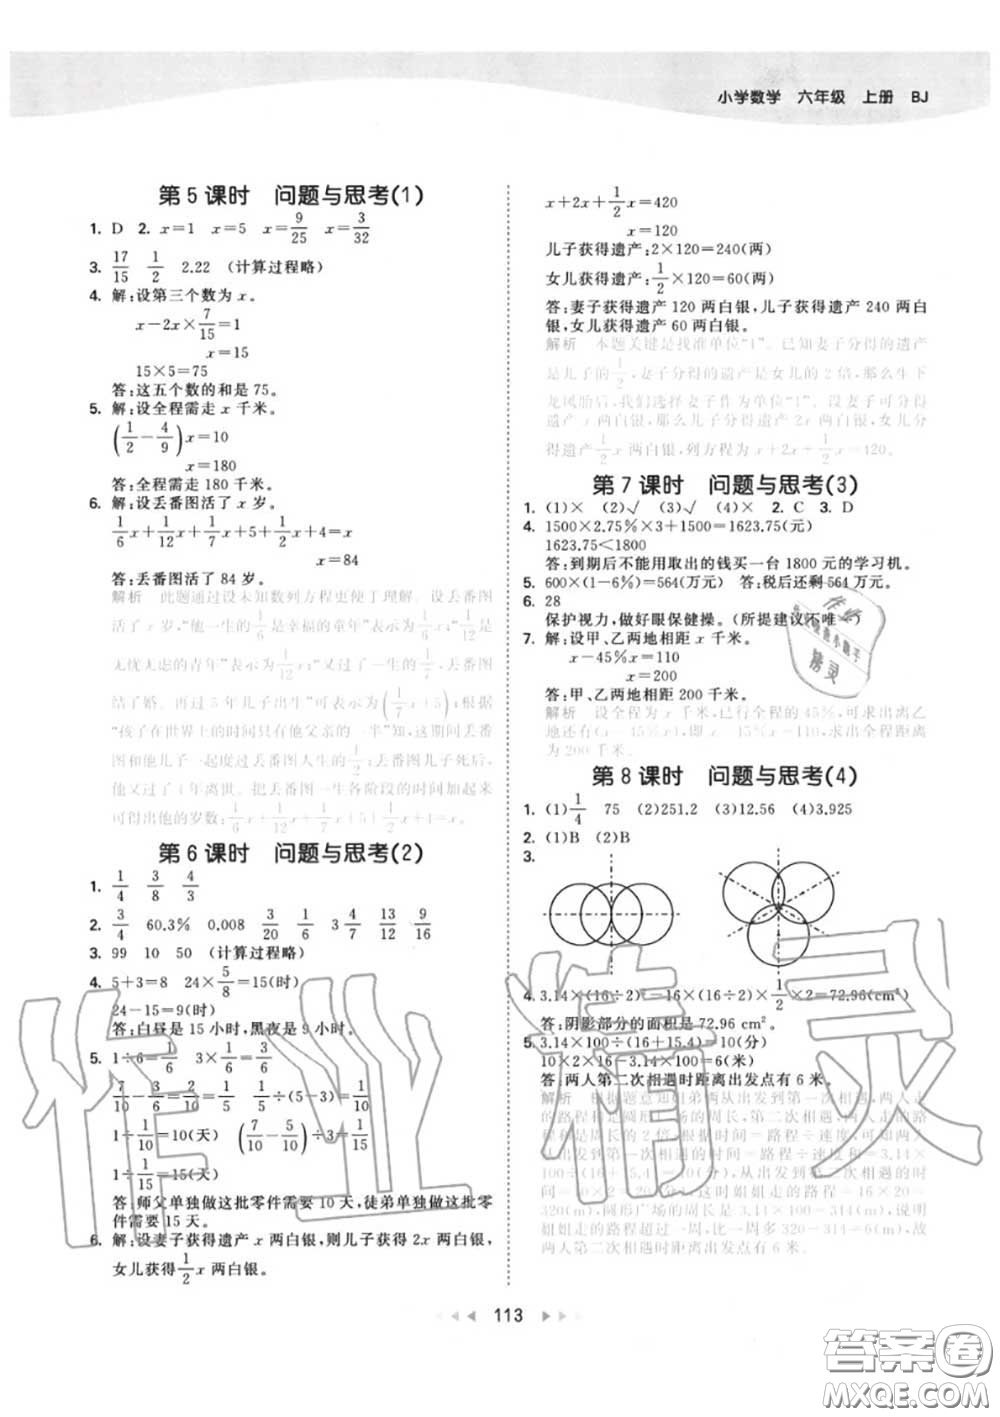 小学数学 六年级 上册 BJ
第5课时 问题与思考(1)
1. D 2. x=1 x=5 x=9/25 x=3/32
3. 17/15 1/2 2.22 (计算过程略)
4. 解:设第三个数为 x。
x-2x×7/15=1
x=15
15×5=75
答:这五个数的和是 75。
5. 解:设全程需走 x 千米。
(1/2-4/9)x=10
x=180
答:全程需走 180 千米。
6. 解:设丢番图活了 x 岁。
1/6x+1/12x+1/7x+5+1/2x+4=x
x=84
答:丢番图活了 84 岁。
解析 此题通过设未知数列方程更便于理解。设丢番图
活了 x 岁,“他一生的1/6是幸福的童年”表示为1/6x;“1/12是
无忧无虑的青年”表示为1/12x;“又过了一生的1/7,丢番图
结了婚。再过 5 年儿子出生”可表示为(1/7x+5);根据
“孩子在世界上的时间只有他父亲的一半”知,丢番图
和他儿子一起度过丢番图人生的1/2;丢番图儿子死后,
又过了 4 年离世。把丢番图一生各阶段的时间加起来
可得出他的岁数:1/6x+1/12x+1/7x+5+1/2x+4=x。
第6课时 问题与思考(2)
1. 1/4 3/8 4/3
2. 3/4 60.3% 0.008 3/20 1/6 3 4/7 4/13 12/13 9/16
3. 99 10 50 (计算过程略)
4. 5+3=8 24×5/8=15(时)
24-15=9(时)
答:白昼是 15 小时,黑夜是 9 小时。
5. 1÷6=1/6 3×1/6=3/6
7/10-3/6=2/10 2/10÷(5-3)=1/10
1÷1/10=10(天) (7/10-5/10)÷3=1/15
1÷1/15=15(天)
答:师父单独做这批零件需要 10 天,徒弟单独做这批零
件需要 15 天。
6. 解:设妻子获得遗产 x 两白银,则儿子获得 2x 两白银,
女儿获得1/2x 两白银。
x+2x+1/2x=420
x=120
儿子获得遗产:2×120=240(两)
女儿获得遗产:1/2×120=60(两)
答:妻子获得遗产 120 两白银,儿子获得遗产 240 两白
银,女儿获得遗产 60 两白银。
解析 本题关键是找准单位“1”。已知妻子分得的遗产
是儿子的1/2,妻子分得的遗产是女儿的 2 倍,那么生下
龙凤胎后,我们选择妻子作为单位“1”。设妻子可分得
遗产 x 两白银,那么儿子分得遗产 2x 两白银,女儿分
得遗产1/2x 两白银,列方程为 x+2x+1/2x=120。
第7课时 问题与思考(3)
1. (1)× (2)√ (3)√ (4)× 2. C 3. D
4. 1500×2.75%×3+1500=1623.75(元)
1623.75<1800
答:到期后不能用取出的钱买一台 1800 元的学习机。
5. 600×(1-6%)=564(万元) 答:税后还剩 564 万元。
6. 28
保护视力,做好眼保健操。(所提建议不唯一)
7. 解:设甲、乙两地相距 x 千米。
x-45%x=110
x=200
答:甲、乙两地相距 200 千米。
解析 设全程为 x 千米,已行全程的 45%,可求出离乙
地还有(x-45%x)千米,即 x-45%x=110,求出全程
为 200 千米。
第8课时 问题与思考(4)
1. (1)1/4 75 (2)251.2 (3)12.56 (4)3.925
2. (1)B (2)B
3.
4. 3.14×(16÷2)²-16×(16÷2)×1/2×2=72.96(cm²)
答:阴影部分的面积是 72.96 cm²。
5. 3.14×100÷(16+15.4)=10(分)
10×2×16-3.14×100=6(米)
答:两人第二次相遇时距离出发点有 6 米。
113
作业精灵
答案圈
MXQE.COM